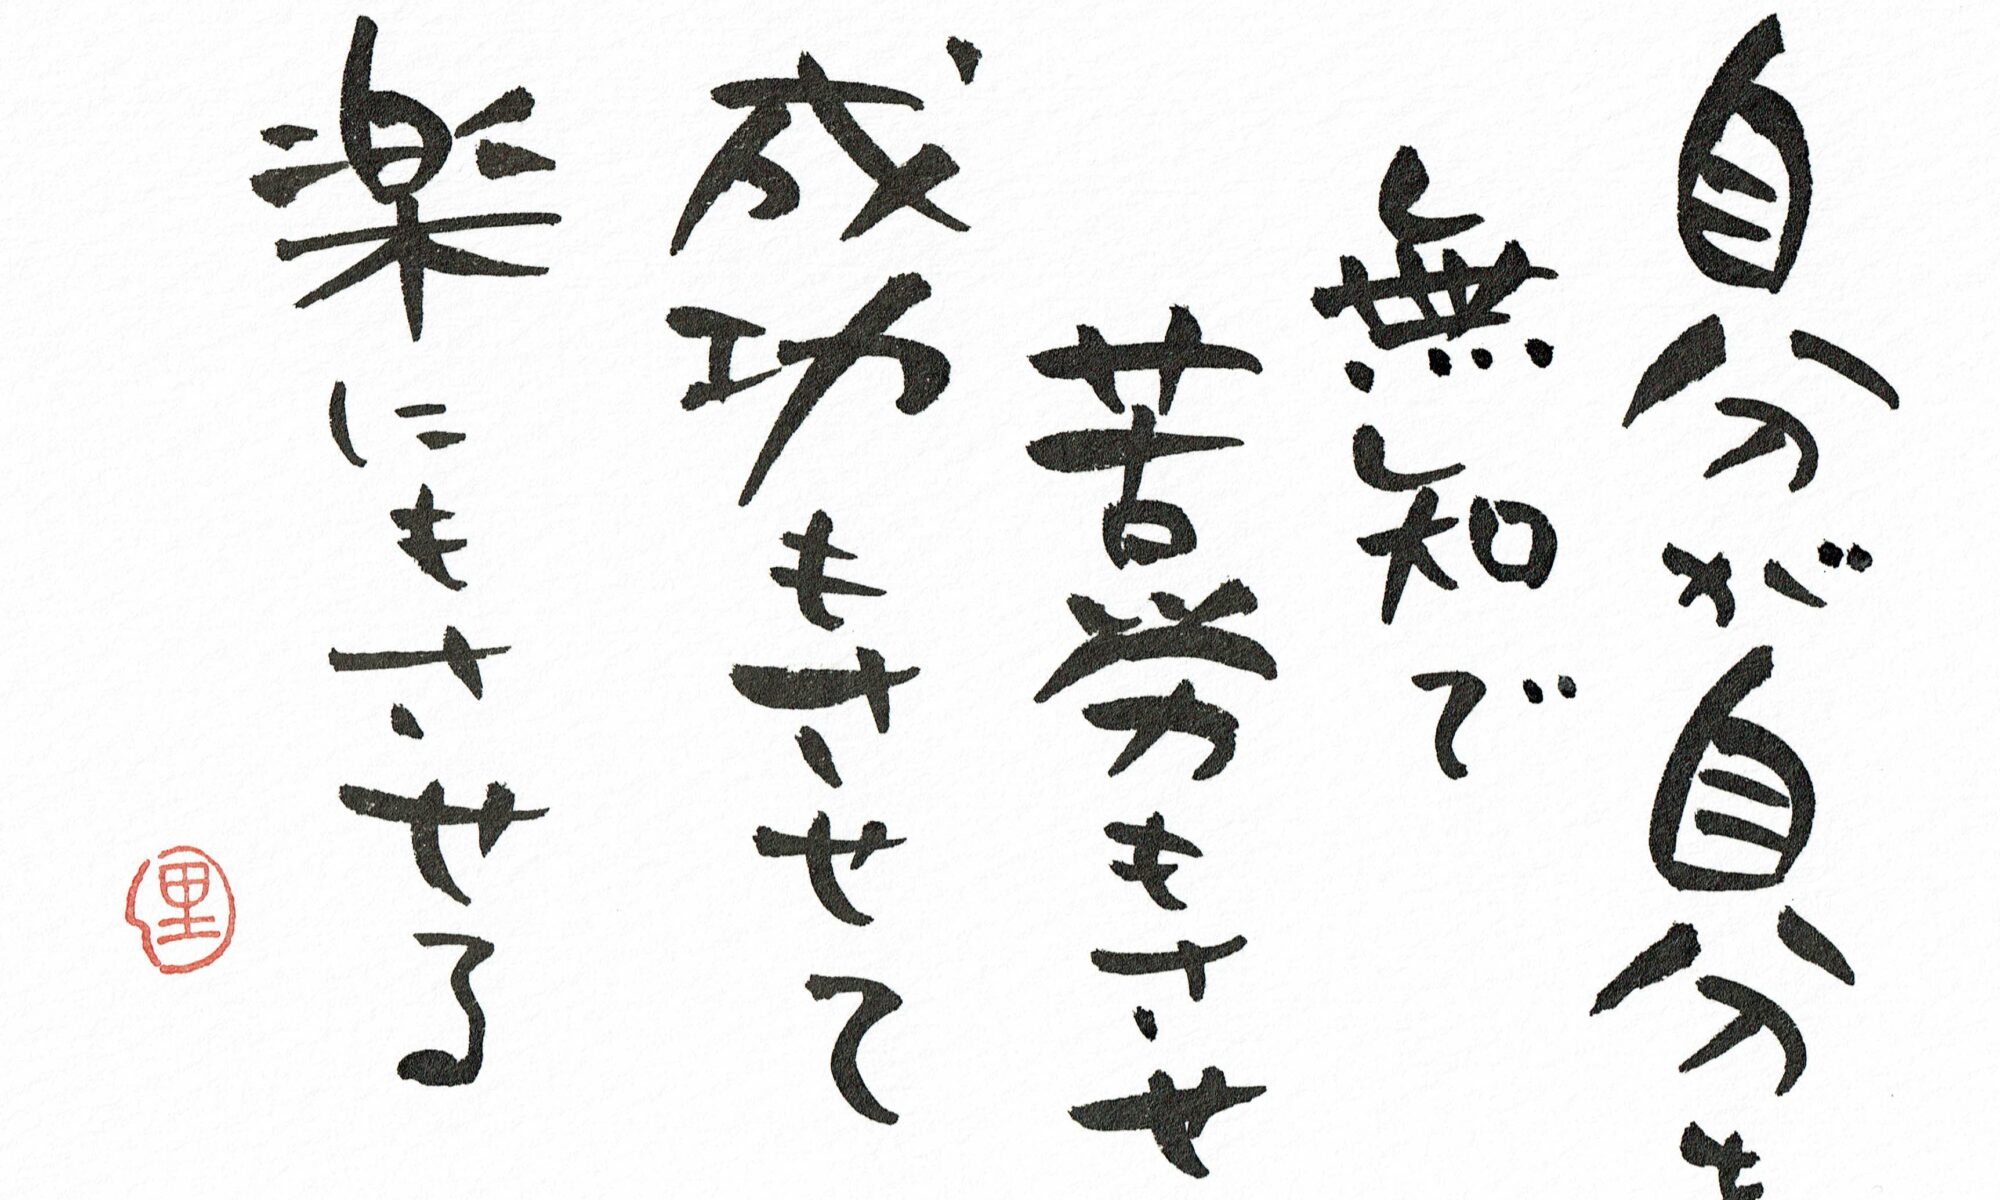 自分が自分を
無知で
苦労もさせ
成功もさせて
楽にもさせる
里